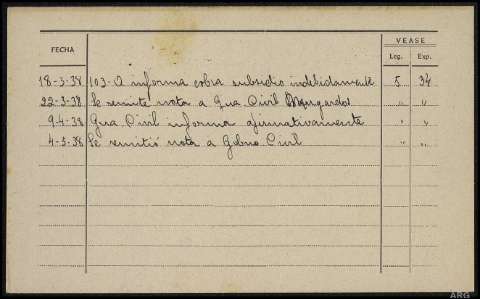 VEASE
FECHA
Leg. Exp.
18-3-38 103-O informa cobra subsidio indebidamente 5 34
22-3-38 Se remite nota a Gua Civil Mugardos " "
9-4-38 Gua Civil informa afirmativamente " "
4-5-38 Se remitió nota a Gobno Civil " "
ARG